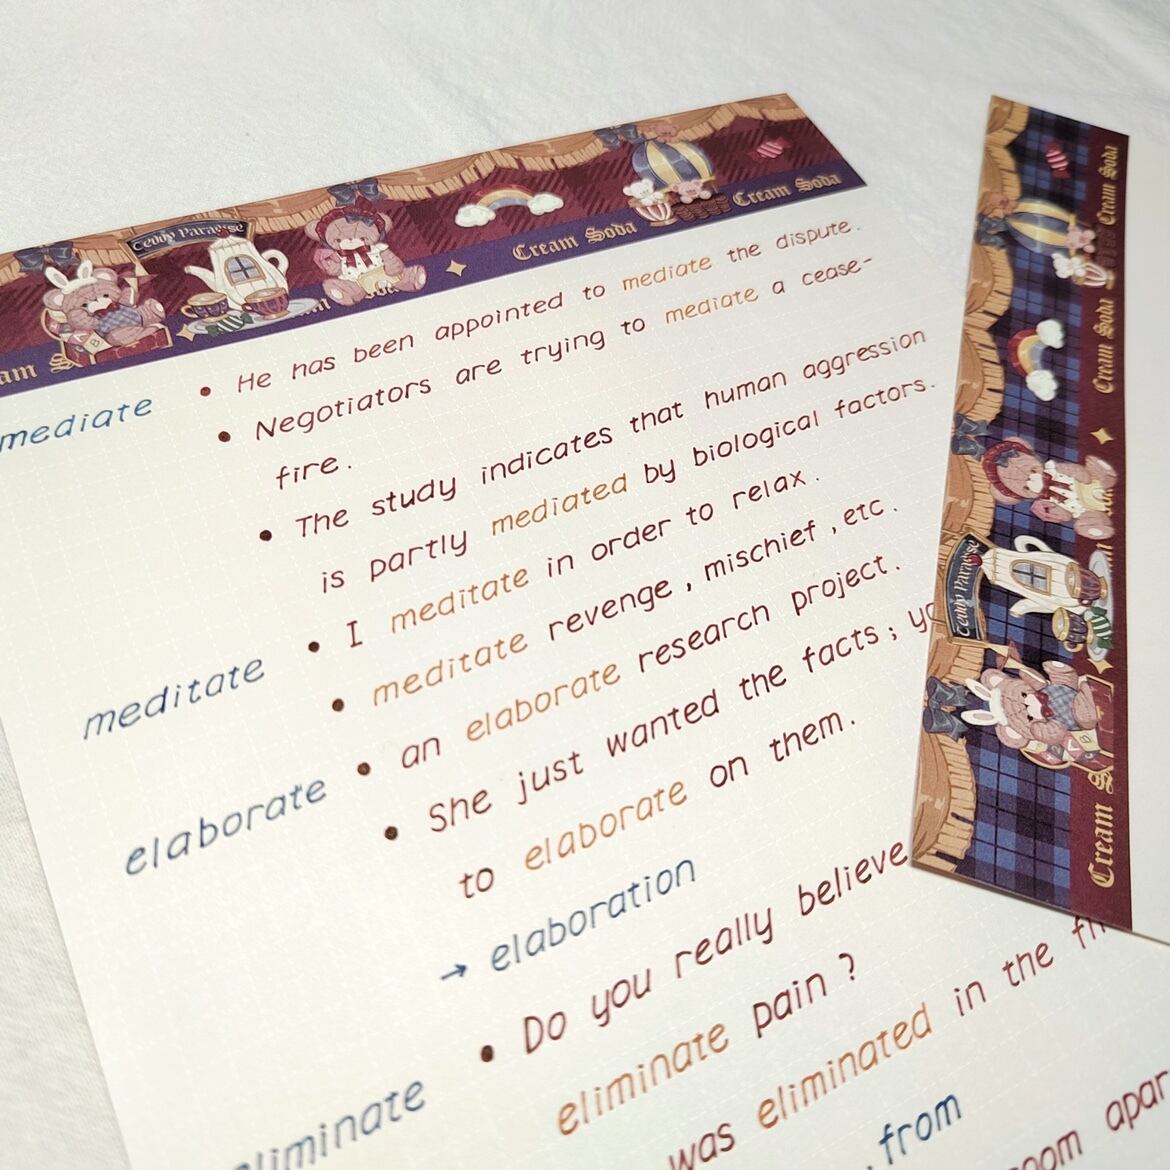 Teddy Paradise
Cream Soda
Cream Soda
mediate
He has been appointed to mediate the dispute.
Negotiators are trying to mediate a cease-
fire.
The study indicates that human aggression
is partly mediated by biological factors.
meditate
I meditate in order to relax.
meditate revenge, mischief, etc.
elaborate
an elaborate research project.
She just wanted the facts;
to elaborate on them.
→ elaboration
Do you really believe
eliminate pain?
was eliminated in the
from
Teddy Paradise
Cream Soda
Cream Soda
Cream